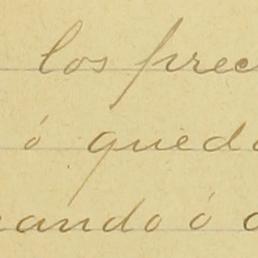 los prec
ó queda
cando ó a